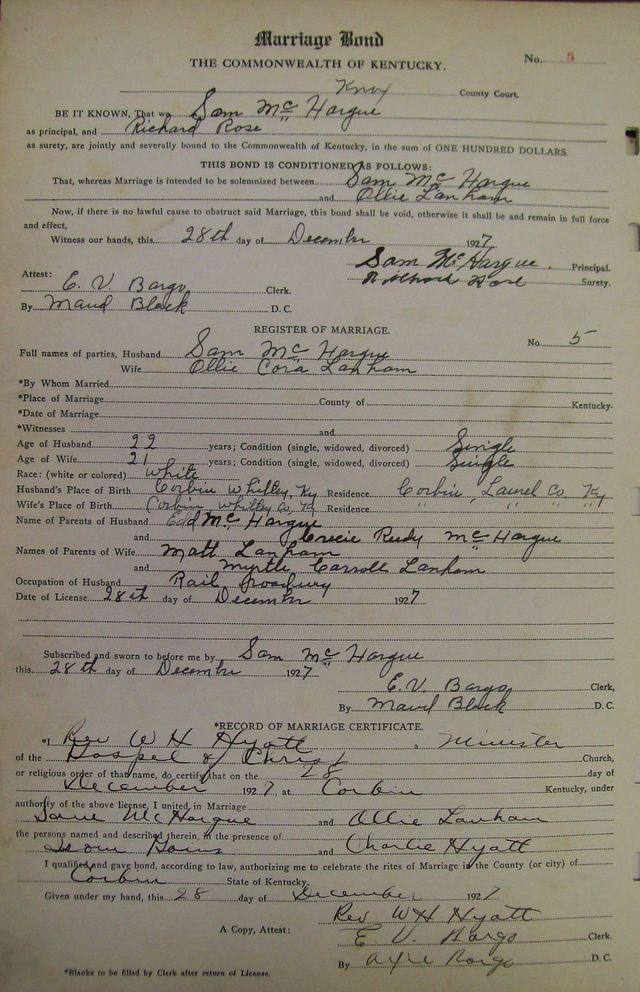 Marriage Bond
THE COMMONWEALTH OF KENTUCKY.
No. 5
Knox County Court.
BE IT KNOWN, That we Sam Mc Hargue
as principal, and Richard Rose
as surety, are jointly and severally bound to the Commonwealth of Kentucky, in the sum of ONE HUNDRED DOLLARS.
THIS BOND IS CONDITIONED AS FOLLOWS:
That, whereas Marriage is intended to be solemnized between Sam Mc Hargue
and Ollie Lanham
Now, if there is no lawful cause to obstruct said Marriage, this bond shall be void, otherwise it shall be and remain in full force
and effect,
Witness our hands, this 28th day of December 1927
Sam McHargue. Principal.
Richard Rose Surety.
Attest:
E. V. Bargo Clerk.
By Maud Black D. C.
REGISTER OF MARRIAGE.
No. 5
Full names of parties, Husband Sam Mc Hargue
Wife Ollie Cora Lanham
*By Whom Married
*Place of Marriage County of Kentucky.
*Date of Marriage
*Witnesses and
Age of Husband 22 years; Condition (single, widowed, divorced) Single
Age of Wife 21 years; Condition (single, widowed, divorced) Single
Race: (white or colored) White
Husband's Place of Birth Corbin Whitley, Ky Residence Corbin, Laurel Co, Ky
Wife's Place of Birth Corbin Whitley Co, Ky Residence " " " "
Name of Parents of Husband Edd Mc Hargue
and Reedy Mc Hargue
Names of Parents of Wife Matt Lanham
and Myrtle Carroll Lanham
Occupation of Husband Rail
Date of License 28th day of December 1927
Subscribed and sworn to before me by Sam Mc Hargue
this 28th day of December 1927
E. V. Bargo Clerk,
By Maud Black D. C.
*RECORD OF MARRIAGE CERTIFICATE.
*I Rev W H Hyatt, Minister
of the Gospel of Christ Church,
or religious order of that name, do certify that on the 28 day of
December 1927, at Corbin Kentucky, under
authority of the above license, I united in Marriage
Same McHargue and Ollie Lanham
the persons named and described therein, in the presence of
and Charlie Hyatt
I qualified and gave bond, according to law, authorizing me to celebrate the rites of Marriage in the County (or city) of
Corbin State of Kentucky.
Given under my hand, this 28 day of December 1927
Rev. W H Hyatt
A Copy, Attest: E V Bargo Clerk.
By Bargo D. C.
*Blanks to be filled by Clerk after return of License.